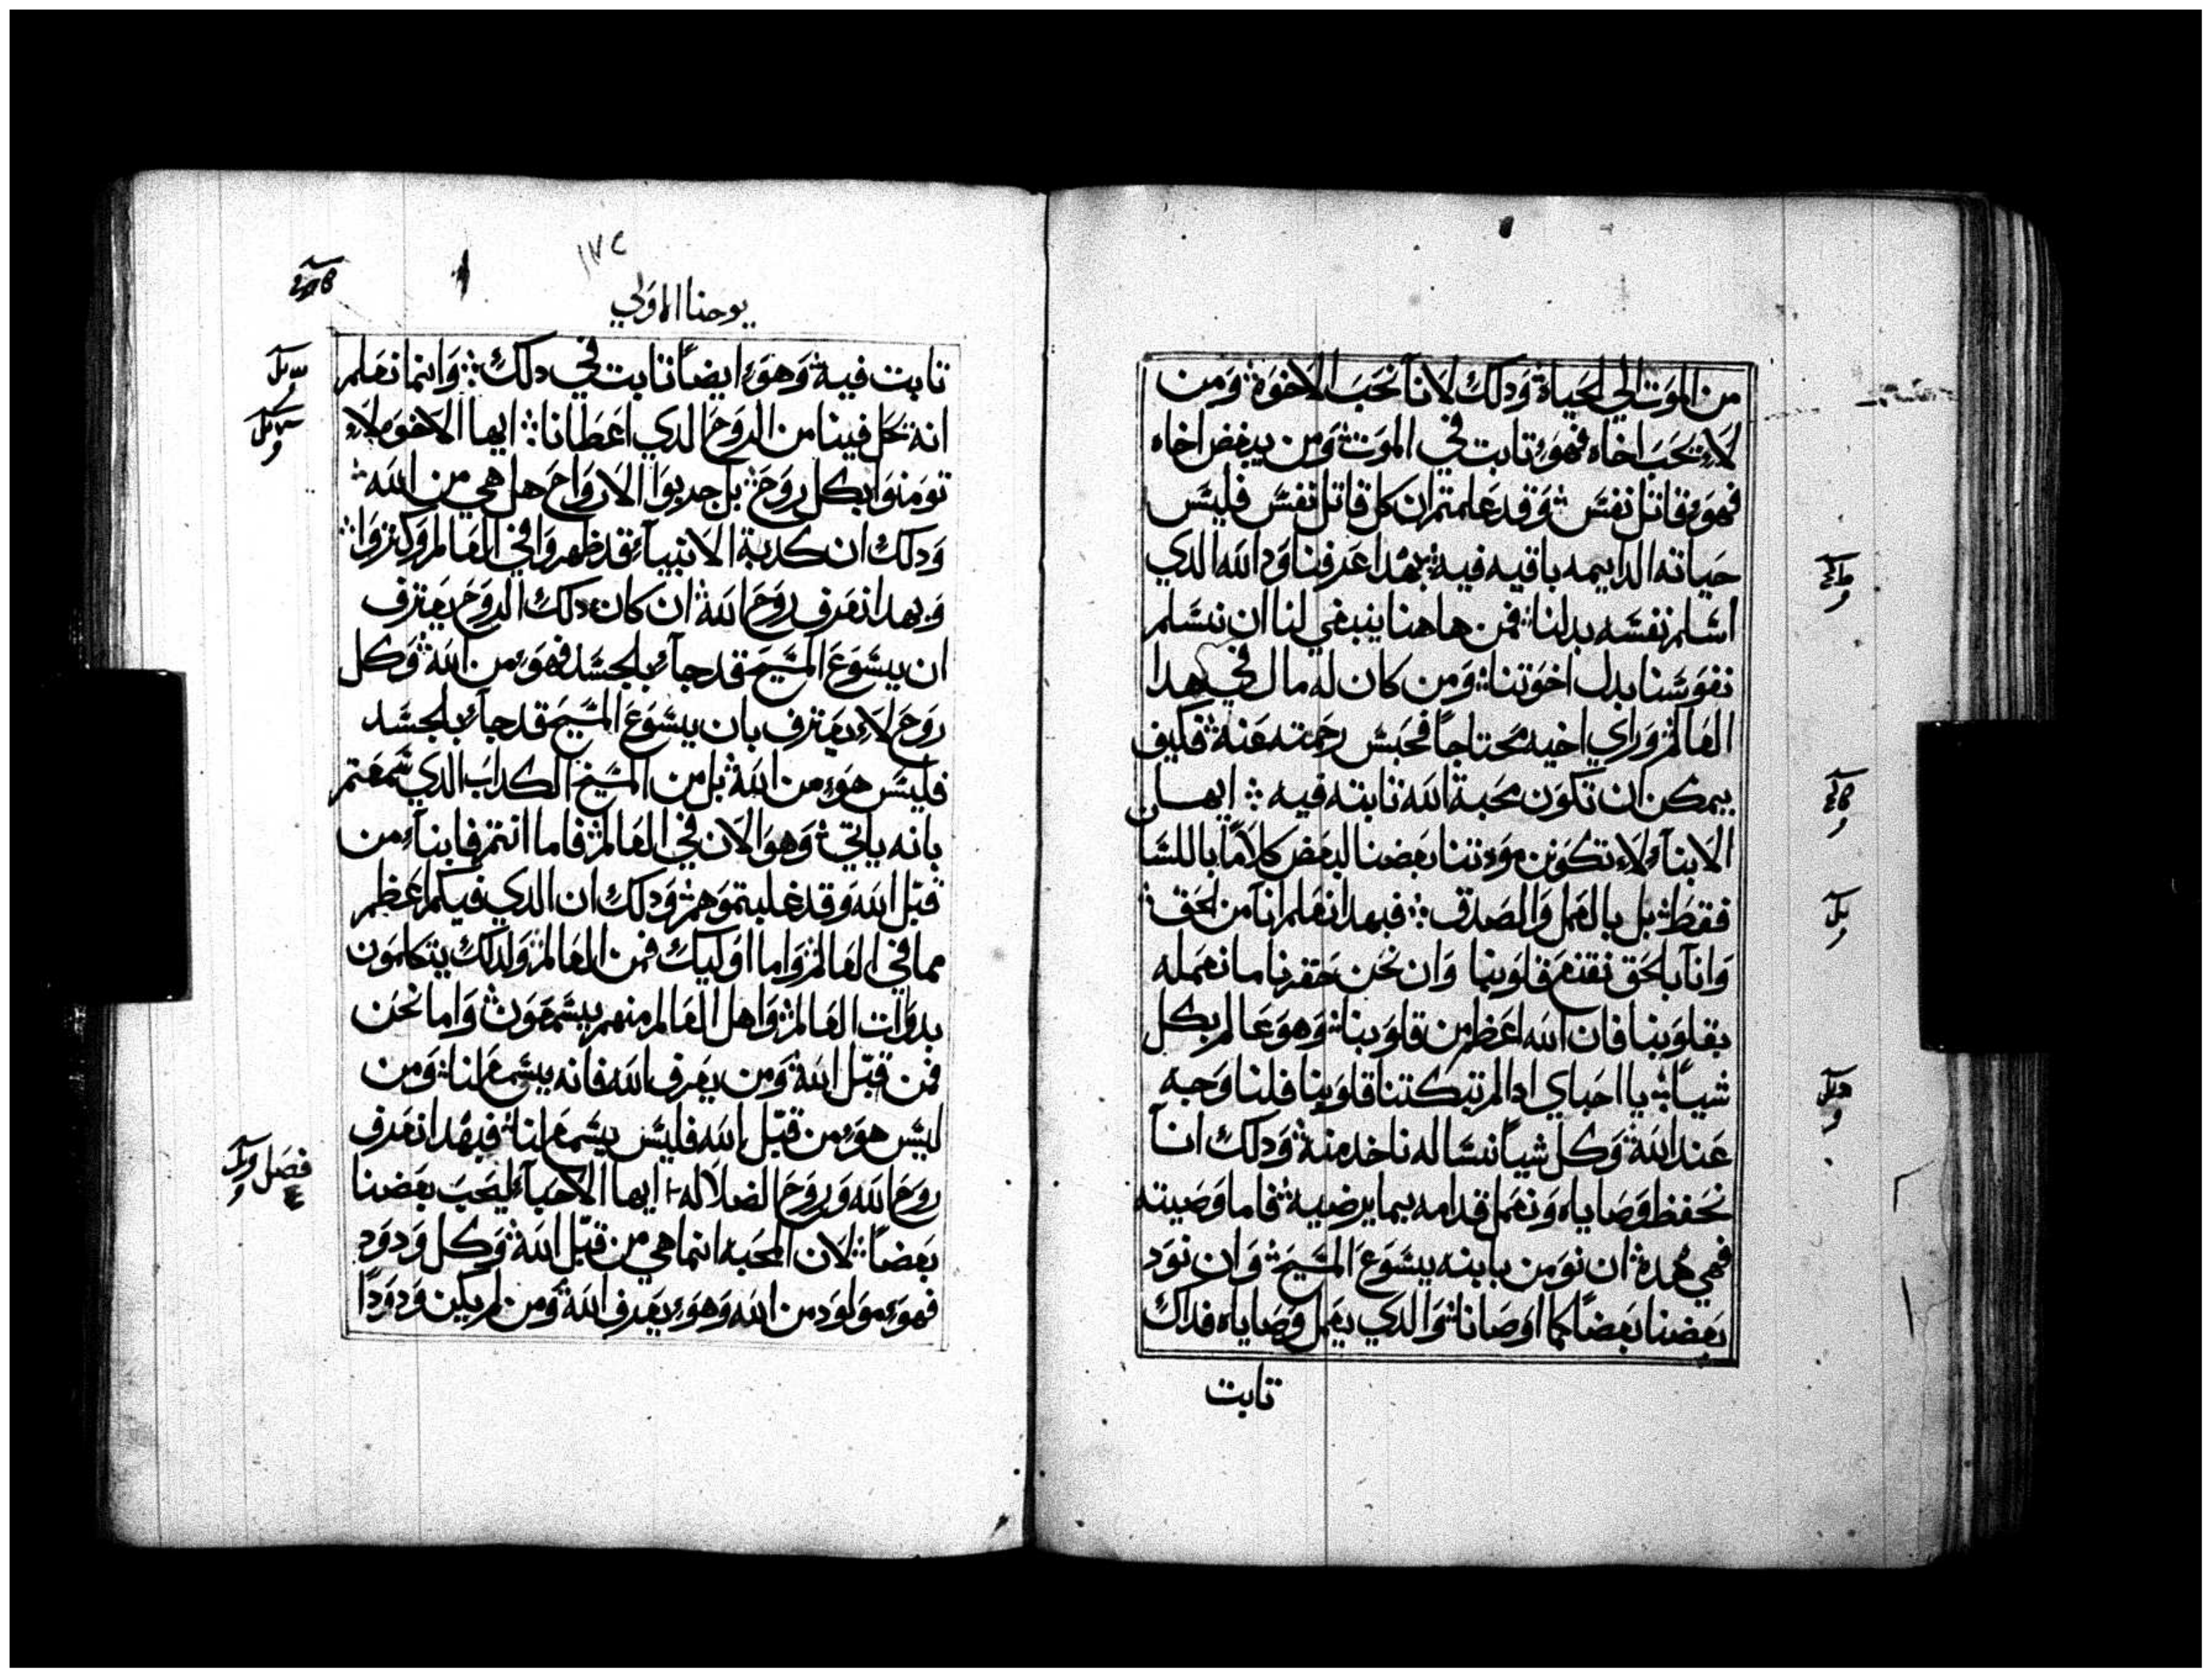 من الموت الي الحياة وذلك لانا نحب الاخوة ومن
لا يحب اخاه فهو تابت في الموت ومن يبغض اخاه
فهو قاتل نفس وقد علمتم ان كل قاتل نفس فليس
حياته الدايمه باقيه فيه بهدا عرفنا ود الله الدي
اسلم نفسه بدلنا فمن هاهنا ينبغي لنا ان نسلم
نفوسنا بدل اخوتنا ومن كان له مال في هدا
العالم وراي اخيه محتاجا فحبس رحمته عنه فكيف
يمكن ان تكون محبة الله تابته فيه ايها
الابناء لا تكونن مودتنا بعضنا لبعض كلاما باللسان
فقط بل بالعمل والصدق فبهدا نعلم انا من الحق
وانا بالحق نقنع قلوبنا وان نحن حقرنا ما نعمله
بقلوبنا فان الله اعظم من قلوبنا وهو عالم بكل
شيا يا احباي ادا لم تبكتنا قلوبنا فلنا وجه
عند الله وكل شيا نساله ناخد منه ودلك انا
نحفظ وصاياه ونعمل قدامه بما يرضيه فاما وصيته
فهي هده ان نومن بابنه يسوع المسيح وان نود
بعضنا بعضا كما اوصانا والدي يعمل وصاياه فداك
تابت
١٧٢
يوحنا الاولي
تابت فيه وهو ايضا تابت في دلك وانما نعلم
انه يحل فينا من الروح الدي اعطانا ايها الاخوه لا
تومنوا بكل روح بل جربوا الارواح هل هي من الله
ودلك ان كدبة الانبياء قد ظهروا في العالم وكتروا
وبهدا نعرف روح الله ان كان دلك الروح يعترف
ان يسوع المسيح قد جاء بالجسد فهو من الله وكل
روح لا يعترف بان يسوع المسيح قد جاء بالجسد
فليس هو من الله بل من المسيح الكداب الدي سمعتم
بانه ياتي وهو الان في العالم فاما انتم فابناء من
قبل الله وقد غلبتموهم ودلك ان الدي فيكم اعظم
مما في العالم واما اوليك فمن العالم ولدلك يتكلمون
بدوات العالم واهل العالم منهم يسمعون واما نحن
فمن قبل الله ومن يعرف الله فانه يسمع لنا ومن
ليس هو من قبل الله فليس يسمع لنا فبهدا نعرف
روح الله وروح الضلاله ايها الاحباء ليحب بعضنا
بعضا لان المحبه انما هي من قبل الله وكل ودود
فهو مولود من الله وهو يعرف الله ومن لم يكن ودودا
فصل